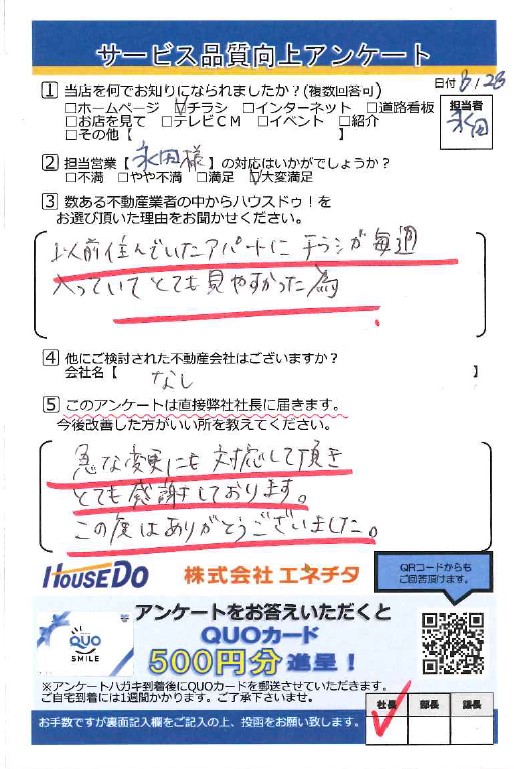 サービス品質向上アンケート
1 当店を何でお知りになられましたか？(複数回答可)
日付 8/28
□ホームページ ☑チラシ □インターネット □道路看板
□お店を見て □テレビCM □イベント □紹介
□その他【 】
担当者
永田
2 担当営業【永田様】の対応はいかがでしょうか？
□不満 □やや不満 □満足 ☑大変満足
3 数ある不動産業者の中からハウスドゥ！を
お選び頂いた理由をお聞かせください。
以前住んでいたアパートにチラシが毎週
入っていてとても見やすかった為
4 他にご検討された不動産会社はございますか？
会社名【 なし 】
5 このアンケートは直接弊社社長に届きます。
今後改善した方がいい所を教えてください。
急な変更にも対応して頂き
とても感謝しております。
この度はありがとうございました。
HOUSEDO 株式会社 エネチタ
QRコードからも
ご回答頂けます。
QUO
SMILE
アンケートをお答えいただくと
QUOカード
500円分進呈！
※アンケートハガキ到着後にQUOカードを郵送させていただきます。
ご自宅到着には1週間かかります。ご了承下さいませ。
お手数ですが裏面記入欄をご記入の上、投函をお願い致します。
社長 部長 課長